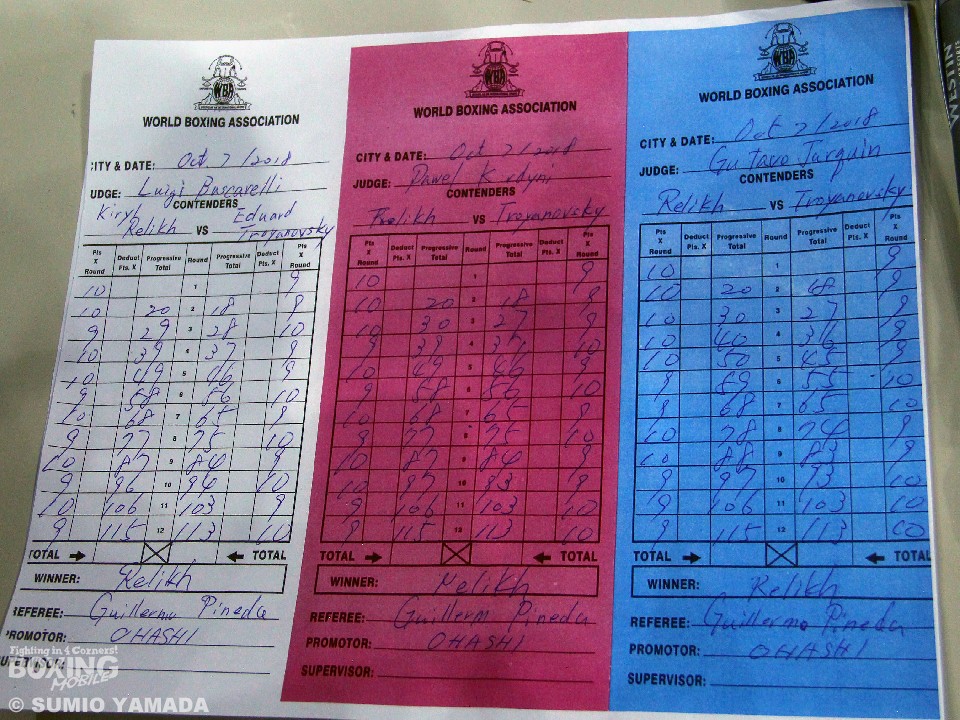 WBA
WORLD BOXING ASSOCIATION
CITY & DATE: Oct 7/2018
JUDGE: Luigi Boscarelli
CONTENDERS
Kiryl Relikh VS Eduard Troyanovsky
Pts X Round Deduct Pts. X Progressive Total Round Progressive Total Deduct Pts. X Pts X Round
10 1 9
10 20 2 18 9
9 29 3 28 10
10 39 4 37 9
10 49 5 46 9
9 58 6 56 10
10 68 7 65 9
9 77 8 75 10
10 87 9 84 9
9 96 10 94 10
10 106 11 103 9
9 115 12 113 10
TOTAL TOTAL
WINNER: Relikh
REFEREE: Guillermo Pineda
PROMOTOR: OHASHI
SUPERVISOR:
WBA
WORLD BOXING ASSOCIATION
CITY & DATE: Oct 7/2018
JUDGE: Pawel
CONTENDERS
Relikh VS Troyanovsky
Pts X Round Deduct Pts. X Progressive Total Round Progressive Total Deduct Pts. X Pts X Round
10 1 9
10 20 2 18 9
10 30 3 27 9
9 39 4 37 10
10 49 5 46 9
9 58 6 56 10
10 68 7 65 9
9 77 8 75 10
10 87 9 84 9
10 97 10 93 9
9 106 11 103 10
9 115 12 113 10
TOTAL TOTAL
WINNER: Relikh
REFEREE: Guillerm Pineda
PROMOTOR: OHASHI
SUPERVISOR:
WBA
WORLD BOXING ASSOCIATION
CITY & DATE: Oct 7/2018
JUDGE: Gustavo Jarquin
CONTENDERS
Relikh VS Troyanovsky
Pts X Round Deduct Pts. X Progressive Total Round Progressive Total Deduct Pts. X Pts X Round
10 1 9
10 20 2 18 9
10 30 3 27 9
10 40 4 36 9
10 50 5 45 9
9 59 6 55 10
9 68 7 65 10
10 78 8 74 9
10 88 9 83 9
9 97 10 93 10
9 106 11 103 10
9 115 12 113 10
TOTAL TOTAL
WINNER: Relikh
REFEREE: Guillermo Pineda
PROMOTOR: OHASHI
SUPERVISOR:
Fighting in 4 Corners!
BOXING
MOBILE
© SUMIO YAMADA